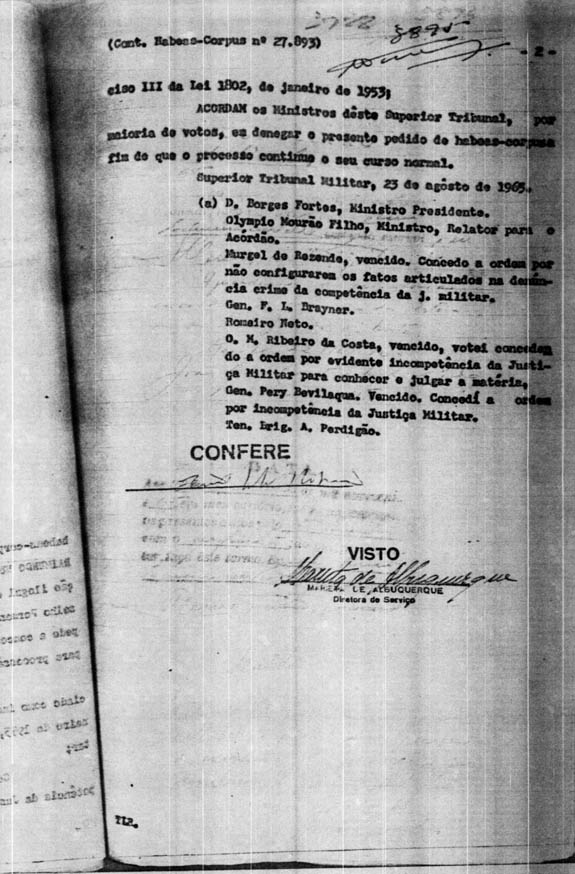 (Cont. Habeas-Corpus nº 27.893)
8895
- 2 -
ciso III da Lei 1802, de janeiro de 1953;
ACORDAM os Ministros dêste Superior Tribunal, por
maioria de votos, em denegar o presente pedido de habeas-corpus
fim de que o processo continue o seu curso normal.
Superior Tribunal Militar, 23 de agôsto de 1965.
(a) D. Borges Fortes, Ministro Presidente.
Olympio Mourão Filho, Ministro, Relator para o
Acórdão.
Murgel de Rezende, vencido. Concedo a ordem por
não configurarem os fatos articulados na denún-
cia crime da competência da j. militar.
Gen. F. L. Brayner.
Romeiro Neto.
O. M. Ribeiro da Costa, vencido, votei conceden
do a ordem por evidente incompetência da Justi-
ça Militar para conhecer e julgar a matéria,
Gen. Pery Bevilaqua. Vencido. Concedí a ordem
por incompetência da Justiça Militar.
Ten. Brig. A. Perdigão.
CONFERE
VISTO
de Albuquerque
DE ALBUQUERQUE
Diretora de Serviço
TLP.